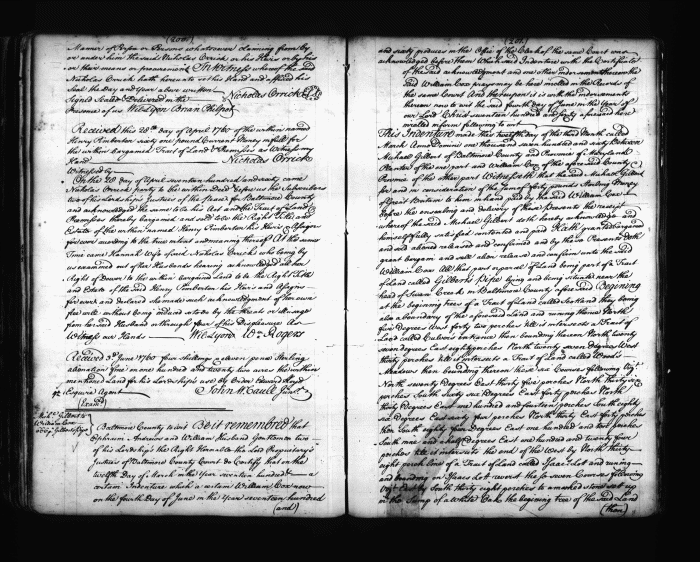 (200)
Manner of Person or Persons whatsoever claiming from by
or under him the said Nicholas Orrick or his Heirs or by his
or their means or procurement In Witness whereof the said
Nicholas Orrick hath hereunto set his Hand and affixed his
Seal the Day and year above written
Signed Sealed & Delivered in the Nicholas Orrick
Presence of us Wm Lyon Brian Philpot
Received this 28th day of April 1760 of the within named
Henry Pimberton sixty one pound Current Money in full for
the within bargained Tract of Land & Premises as Witness my
Hand Nicholas Orrick
Witness
On the 28 day of April seventeen hundred and sixty came
Nicholas Orrick party to the within Deed before us the Subscribers
two of his Lordships Justices of the Peace for Baltimore County
and acknowledged the same to be his Act and the Tract of Land &
Premises thereby bargained and sold to be the Right Title and
Estate of the within named Henry Pimberton his Heirs & Assigns
for ever according to the true intent and meaning thereof At the same
Time came Hannah Wife of said Nicholas Orrick who being by
us examined out of her Husbands hearing acknowledged her
Right of Dower to the within bargained Land to be the Right Title
and Estate of the said Henry Pimberton his Heirs and Assigns
for ever and declared she made such acknowledgement of her own
free will without being induced thereto by the threats or Menaces
from her said Husband or through fear of his Displeasure As
Witness our Hands Wm Lyon Wm Rogers
Received 3d June 1760 four shillings Sterling
alienation fine on one hundred and twenty two acres the within
mentioned Land for his Lordships use By Order Edward Lloyd
Esquire Agent John H. Caule Junr.
(Exam'd)
Baltimore County to wit Be it remembered that
Ephraim Andrews and William Husband Gentlemen two
of his Lordship the Right Honorable the Lord Proprietary's
Justices of Baltimore County Court do Certify that on the
twelfth day of March in the Year seventeen hundred
certain Indenture which a certain William Cox now
on the fourth Day of June in the Year seventeen hundred
(and)
(201)
and sixty produces in the Office of the Clerk of the same Court was
acknowledged before them Which said Indenture with the Certificate
of the said acknowledgment and one other indorsement thereon the
said William Cox prays may be here enrolled in the Records of
the same Court And the tenor is with the indorsements
thereon now to wit the said fourth day of June in the year of
our Lord Christ seventeen hundred and sixty aforesaid here
enrolled in form following to wit
This Indenture made this twelfth day of the third Month called
March Anno Domini one thousand seven hundred and sixty Between
Michael Gilbert of Baltimore County and Province of Maryland
Planter of the one part and William Cox of the aforesaid County
Province of the other part Witnesseth that the said Michael Gilbert
for and in consideration of the sum of forty pounds Sterling Money
of Great Britain to him in hand paid by the said William Cox
before the ensealing and delivery of these presents the receipt
whereof the said Michael Gilbert doth hereby acknowledge and
himself fully satisfied contented and paid Hath granted bargained
and sold aliened released and confirmed and by these Presents doth
grant bargain and sell alien release and confirm unto the said
William Cox All that part or parcel of Land being part of a Tract
of Land called Gilberts Pipe lying and being situated near the
head of Swan Creek in Baltimore County aforesaid Beginning
at the beginning tree of a Tract of Land called Scotland they being
also a boundary of the aforesaid Land and runing thence North
five Degrees West forty two perches till it intersects a Tract of
Land called then bounding thereon North twenty
seven degrees East eight perches North twenty seven degrees West
thirty perches till it intersects a Tract of Land called Wood's
Meadows then bounding thereon these six Courses following Vizt
North seventy degrees East thirty five perches North thirty
degrees East forty perches
thirty Degrees East one hundred and fourteen perches South eighty
six Degrees East sixty four perches North thirty East forty perches
then South eighty four Degrees East one hundred and two perches
South nine and a half Degrees East one hundred and twenty five
perches till it intersects the end of the West by North thirty
eight perch line of a Tract of Land called Isaac's Lot and runing
and bounding on Isaacs Lot reverst the seven Courses following
Vizt East by South thirty eight perches to a marked stone set up
in the Stump of a White Oak the beginning tree of the said Land
(then)